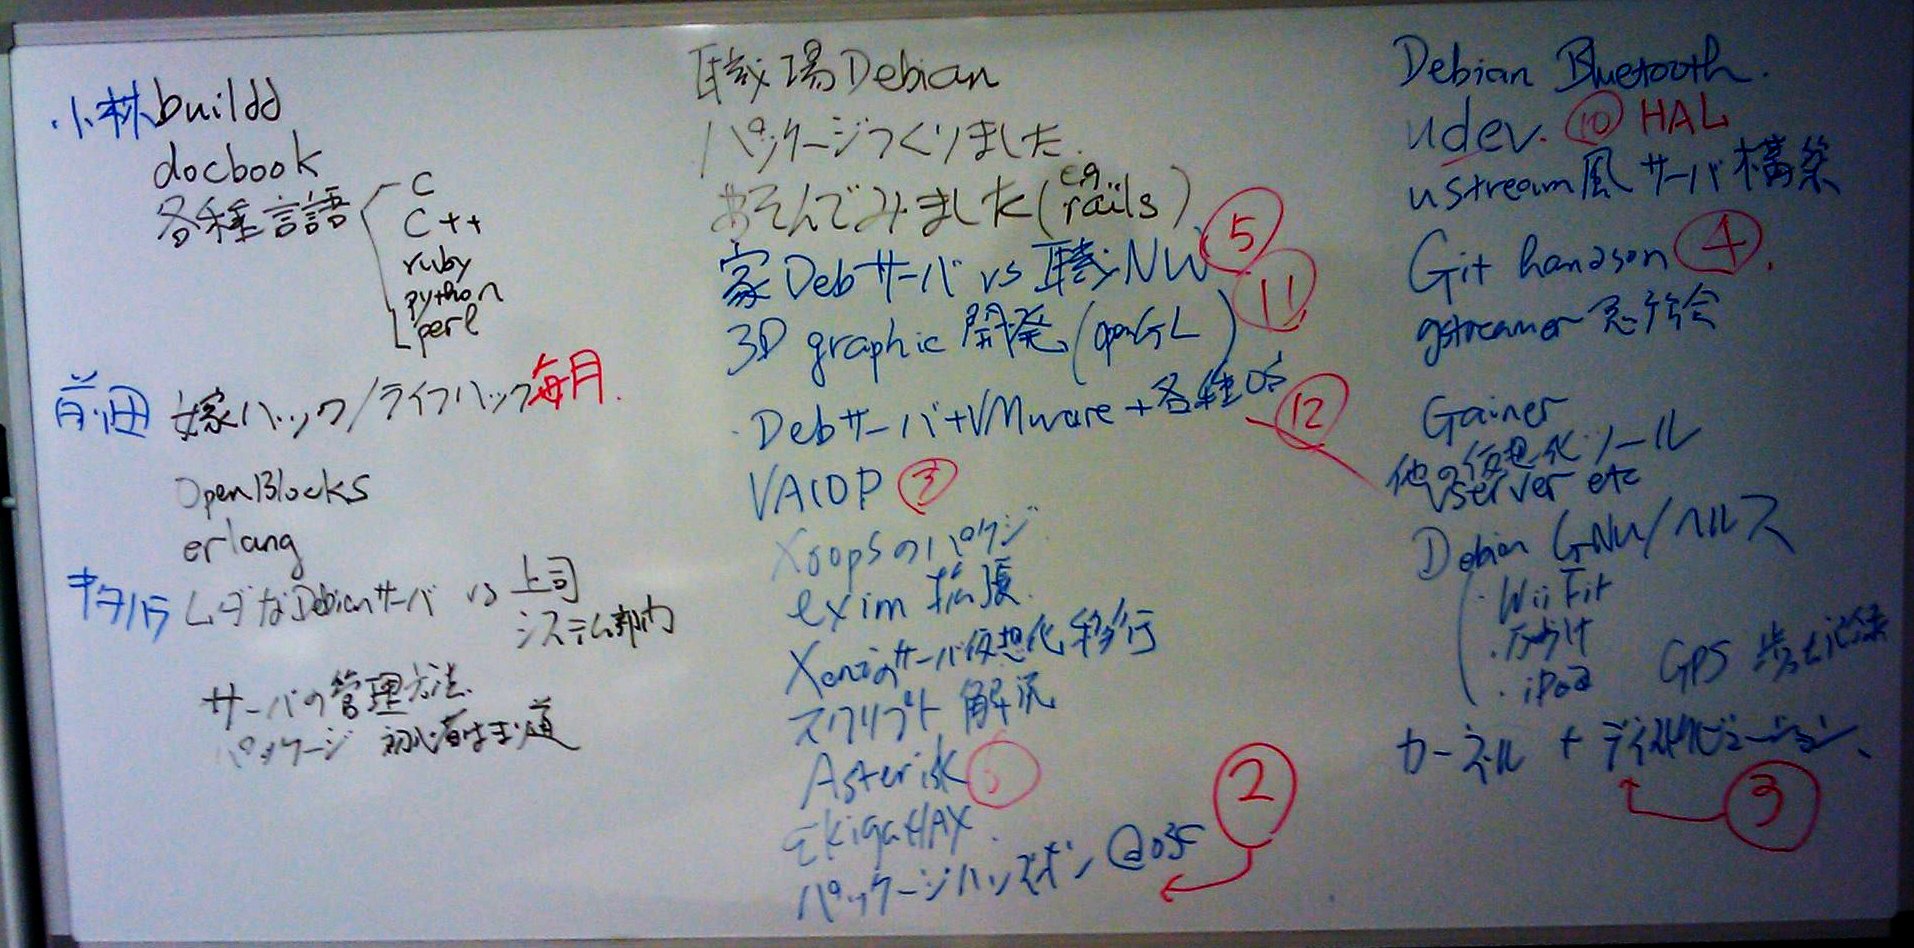 小林 buildd
docbook
各種言語
C
C++
ruby
python
perl
前田 嫁ハック/ライフハック 毎月.
OpenBlocks
erlang
キタハラ ムダなDebianサーバ vs 上司
システム部内
サーバの管理方法.
パッケージ 初心者はまり道
職場Debian
パッケージつくりました.
あそんでみました(eg rails)
家Debサーバ vs 職場NW ⑤
3D graphic 開発(openGL) ⑪
Debサーバ+VMware+各種OS ⑫
VAIOP ⑦
Xoopsのパケジ
exim 拡張.
Xenのサーバ仮想化移行
スクリプト 解読
Asterisk
Ekiga HAX.
パッケージハンズオン @OSF ②
Debian Bluetooth.
udev. ⑩ HAL
ustream風 サーバ構築
Git handson ④.
gstreamer
Gainer
他の仮想化ツール
vserver etc
Debian GNU/ヘルス
・Wii Fit
・iPod
GPS 歩
カーネル + ディストリビューション、 ③